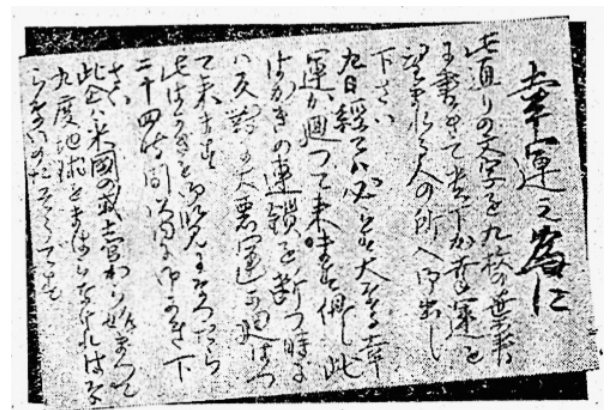 幸運之為に
此通りの文字を九枚の葉書
に書いて貴下が幸運を
望まれる人の所へ御出し
下さい
九日経てハ必ず大なる幸
運が廻つて来ます但し此
はがきの連鎖を断つ時は
ハ反対に大悪運が廻はつ
て来ます
此はがきを御覧になつたら
二十四時間以内に御かき下
さい
此企ハ米國の某士官から始まつて
九度地球をまはらなければな
らないのださうです